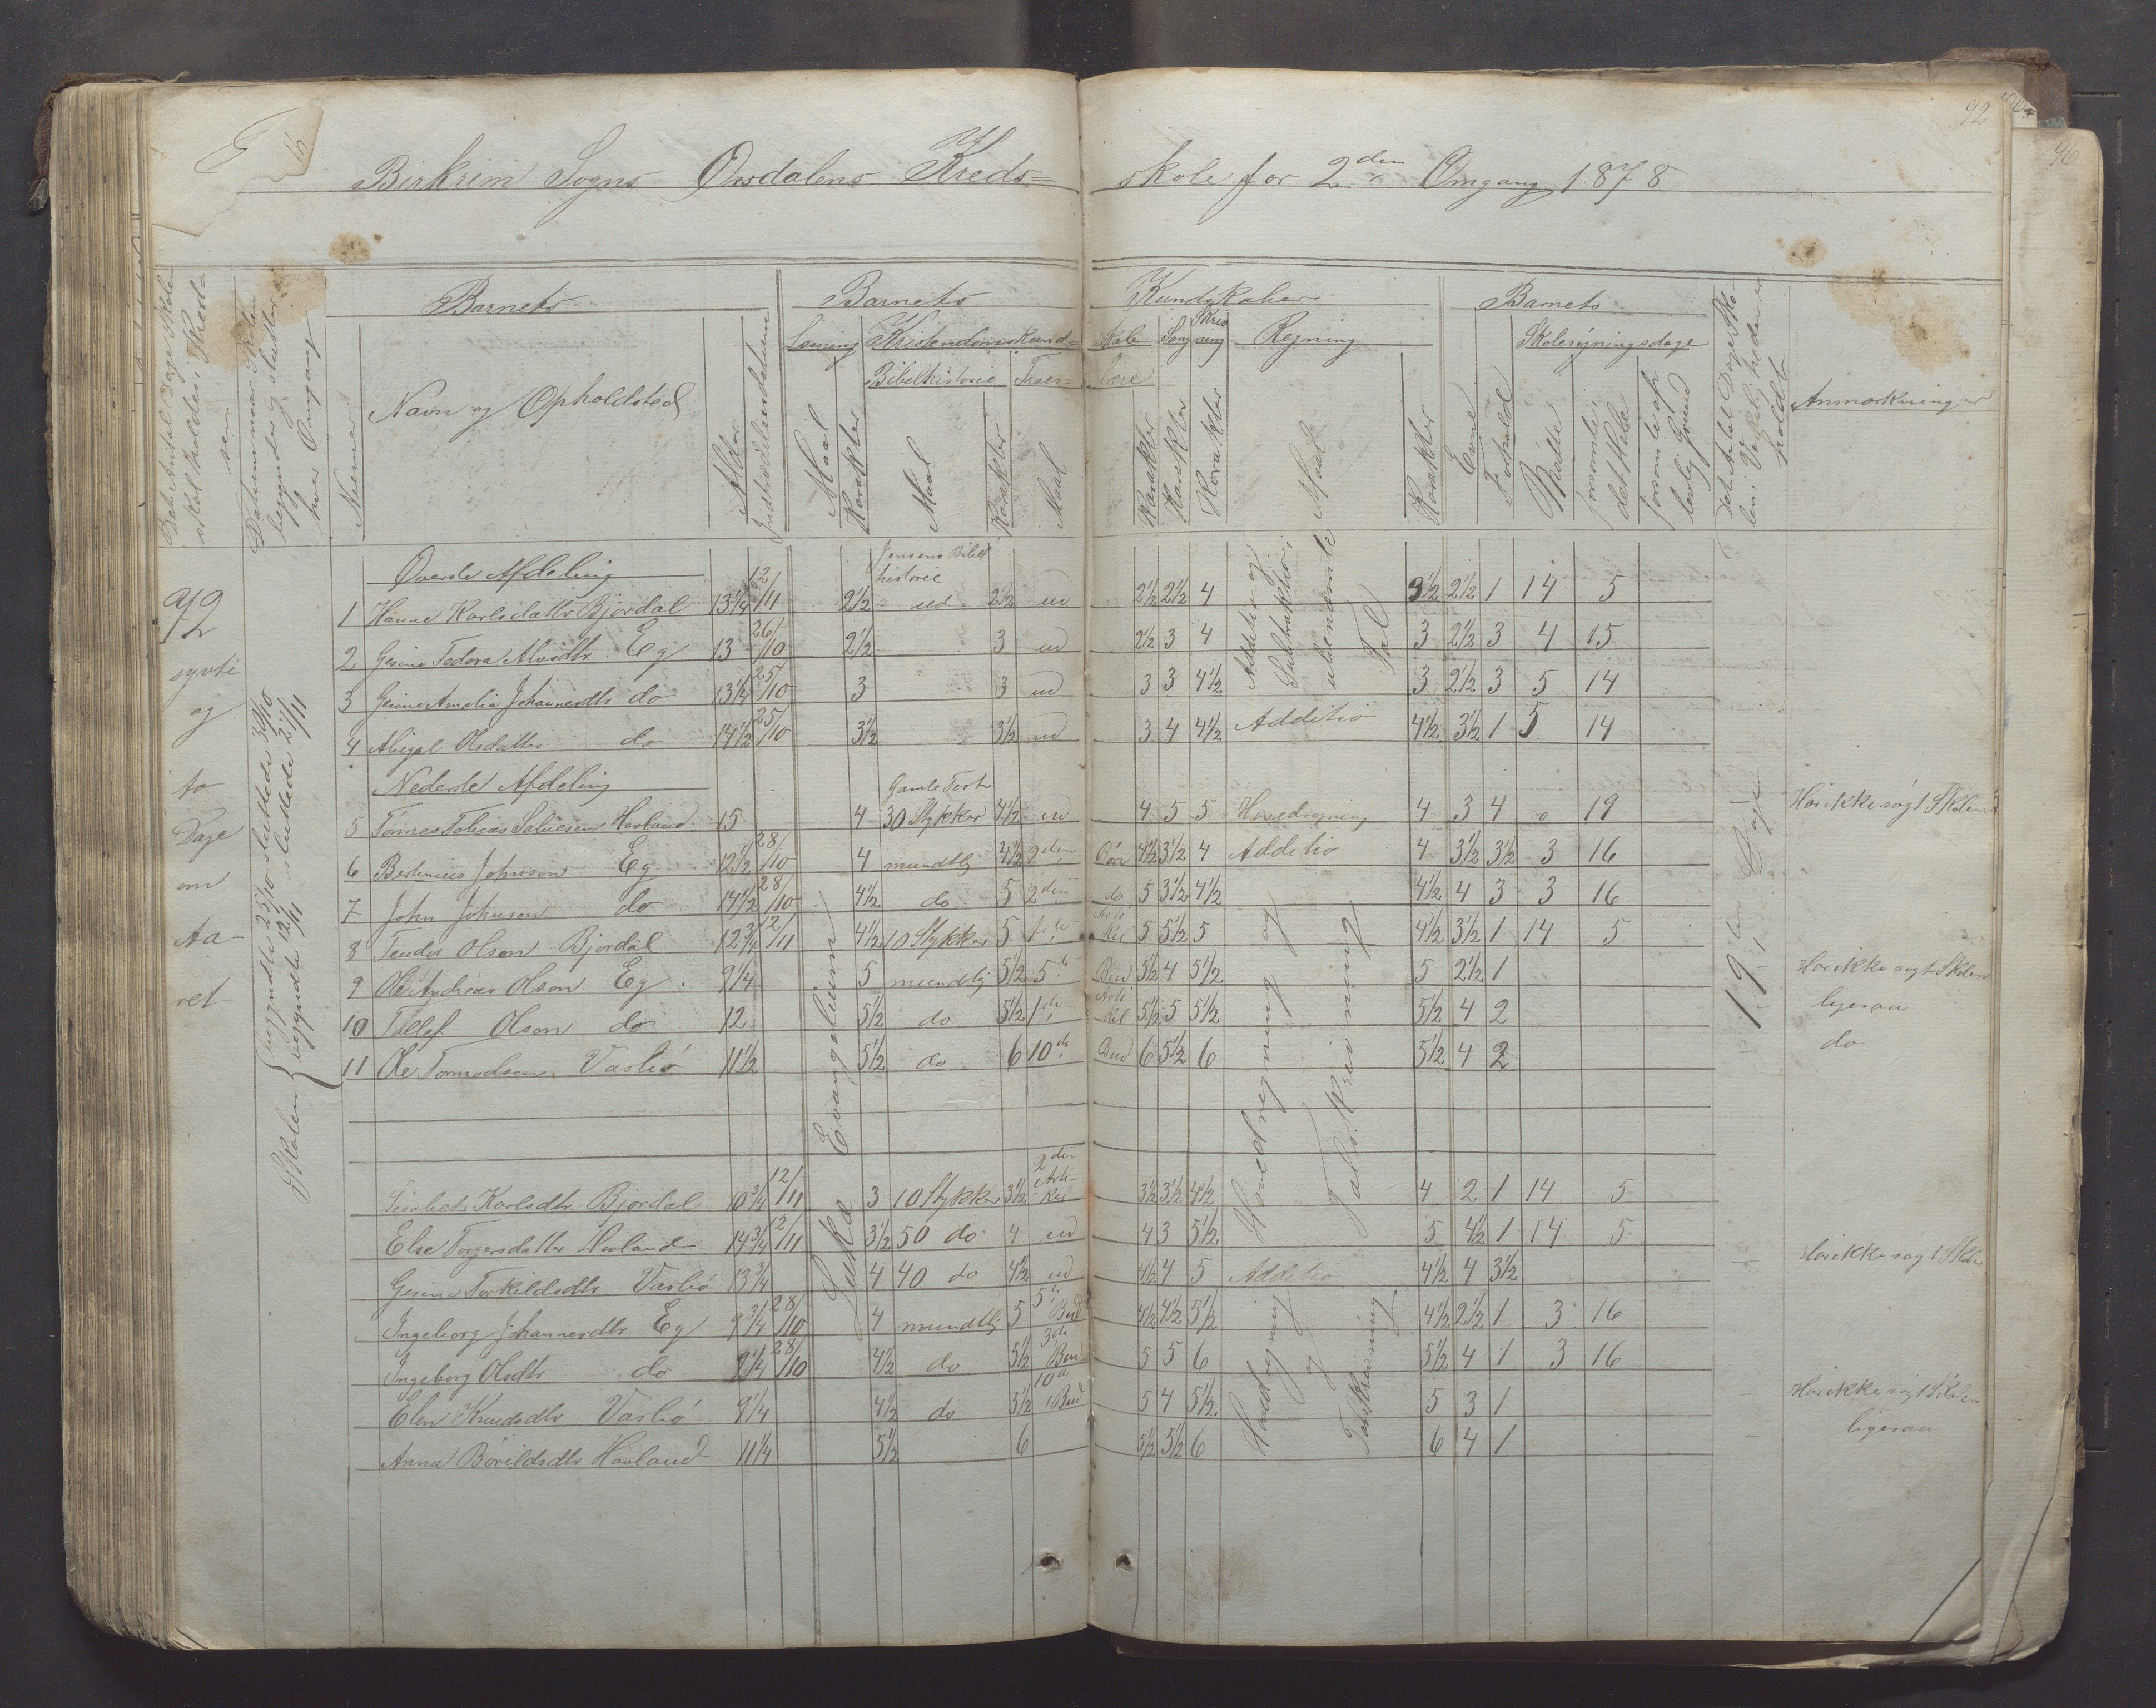 92
96
16
Birkrim Sogns Ørsdalens Kreds=skole for 2den Omgang 1878
Det Antal Dage Skolen skal holdes i Kredsen
Datummer Skolen begynder og slutter og hver Omgang
Barnets
Nummer
Navn og Opholdsted
Alder
Indtrædelsesdatum
Barnets Kundskaber
Læsning
Maal
Karakter
Kristendomskund=skab
Bibelhistorie
Maal
Karakter
Troes=lære
Maal
Karakter
Sang
Karakter
Skrivning
Karakter
Regning
Maal
Karakter
Barnets
Evne
Forhold
Skolesøgningsdage
Mødte
forsømte i det Hele
forsømte af lovlig Grund
Det Antal Dage Skolen i Virkeligheden er holdt
Anmærkninger
72
syvti
og
to
Dage
om
Aa-
ret
Skolen begyndte 25/10 sluttede 30/10
begyndte 12/11 sluttede 27/11
Øverste Afdeling
Jensens Bibelhistorie
1 Hanne Karlsdatter Bjordal 13 1/4 12/11 2 1/2 ud 2 1/2 ud 2 1/2 2 1/2 4 Additio og Subtraktio i ubenævnte Tal 3 1/2 2 1/2 1 14 5
2 Gesine Tedora Alvsdtr Eg 13 26/10 2 1/2 3 ud 2 1/2 3 4 3 2 1/2 3 4 15
3 Gesine Amalia Johannesdtr do 13 1/4 25/10 3 3 ud 3 3 4 1/2 3 2 1/2 3 5 14
4 Abigal Olsdatter do 14 1/2 25/10 3 1/2 3 1/2 ud 3 4 4 1/2 Additio 4 1/2 3 1/2 1 5 14
Nederste Afdeling
Gamle Test
5 Tønnes Tobias Salvesen Havland 15 4 30 Stykker 4 1/2 ud 4 5 5 Hovedregning 4 3 4 0 19 Har ikke søgt Skolen
6 Bertinius Johnson Eg 12 1/2 28/10 4 mundtlj 4 1/2 2den Bøn 4 1/2 3 1/2 4 Additio 4 3 1/2 3 1/2 3 16
7 John Johnson do 14 1/2 28/10 4 1/2 do 5 2den do 5 3 1/2 4 1/2 4 1/2 4 3 3 16
8 Teodor Olson Bjordal 12 3/4 12/11 4 1/2 10 Stykker 5 1ste Artikel 5 5 1/2 5 4 1/2 3 1/2 1 14 5
9 Ole Andreas Olson Eg 9 1/4 5 mundtlj 5 1/2 5te Bud 5 1/2 4 5 1/2 5 2 1/2 1 Har ikke søgt Skolen
10 Tollef Olson do 12 5 1/2 do 5 1/2 1ste Artikel 5 1/2 5 5 1/2 5 1/2 4 2 ligesaa
11 Ole Tormodsen Vasbø 11 1/2 5 1/2 do 6 10de Bud 6 5 1/2 6 5 1/2 4 2 do
Lukæ Evangelium
Hovedregning og Talskrivning
19 ten Dage
Lisabet Karlsdtr Bjordal 10 3/4 12/11 3 10 Stykker 3 1/2 2den Artikel 3 1/2 3 1/2 4 1/2 4 2 1 14 5
Else Torgersdatter Havland 14 3/4 12/11 3 1/2 50 do 4 ud 4 3 5 1/2 5 4 1/2 1 14 5
Gesine Torkildsdtr Vasbø 13 3/4 4 40 do 4 1/2 ud 4 1/2 4 5 Additio 4 1/2 4 3 1/2 Har ikke søgt Skolen
Ingeborg Johannesdtr Eg 9 3/4 28/10 4 mundtlj 5 5te Bud 4 1/2 4 1/2 5 1/2 4 1/2 2 1/2 1 3 16
Ingeborg Olsdtr do 9 1/4 28/10 4 1/2 do 5 1/2 3die Bud 5 5 6 5 1/2 4 1 3 16
Elen Knudsdtr Vasbø 9 1/4 4 1/2 do 5 1/2 10de Bud 5 4 5 1/2 5 3 1 Har ikke søgt Skolen
Anna Børildsdtr Havland 11 1/4 5 1/2 6 5 1/2 5 1/2 6 6 4 1 ligesaa
Hovedregning og Talskrivning